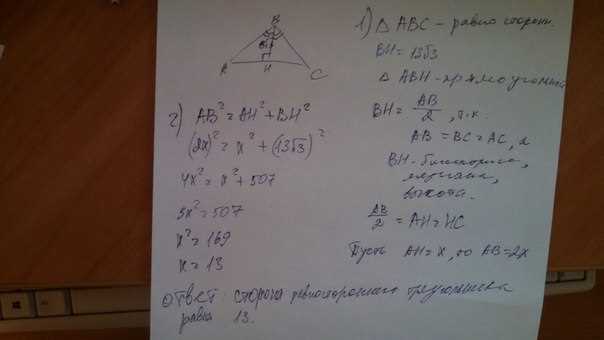 B
A
H
C
1) △ ABC – равносторонн.
BH = 13√3
△ ABH – прямоугольный
BH = AB/2, т.к.
AB = BC = AC, а
BH – биссектриса,
медиана,
высота.
AB/2 = AH = HC
Пусть AH = x, то AB = 2x
2) AB² = AH² + BH²
(2x)² = x² + (13√3)²
4x² = x² + 507
3x² = 507
x² = 169
x = 13
Ответ: сторона равностороннего треугольника
равна 13.